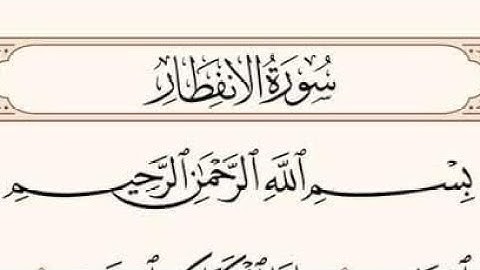 سُورَةُ الانفِطَارِ
بِسْمِ ٱللَّهِ ٱلرَّحْمَٰنِ ٱلرَّحِيمِ